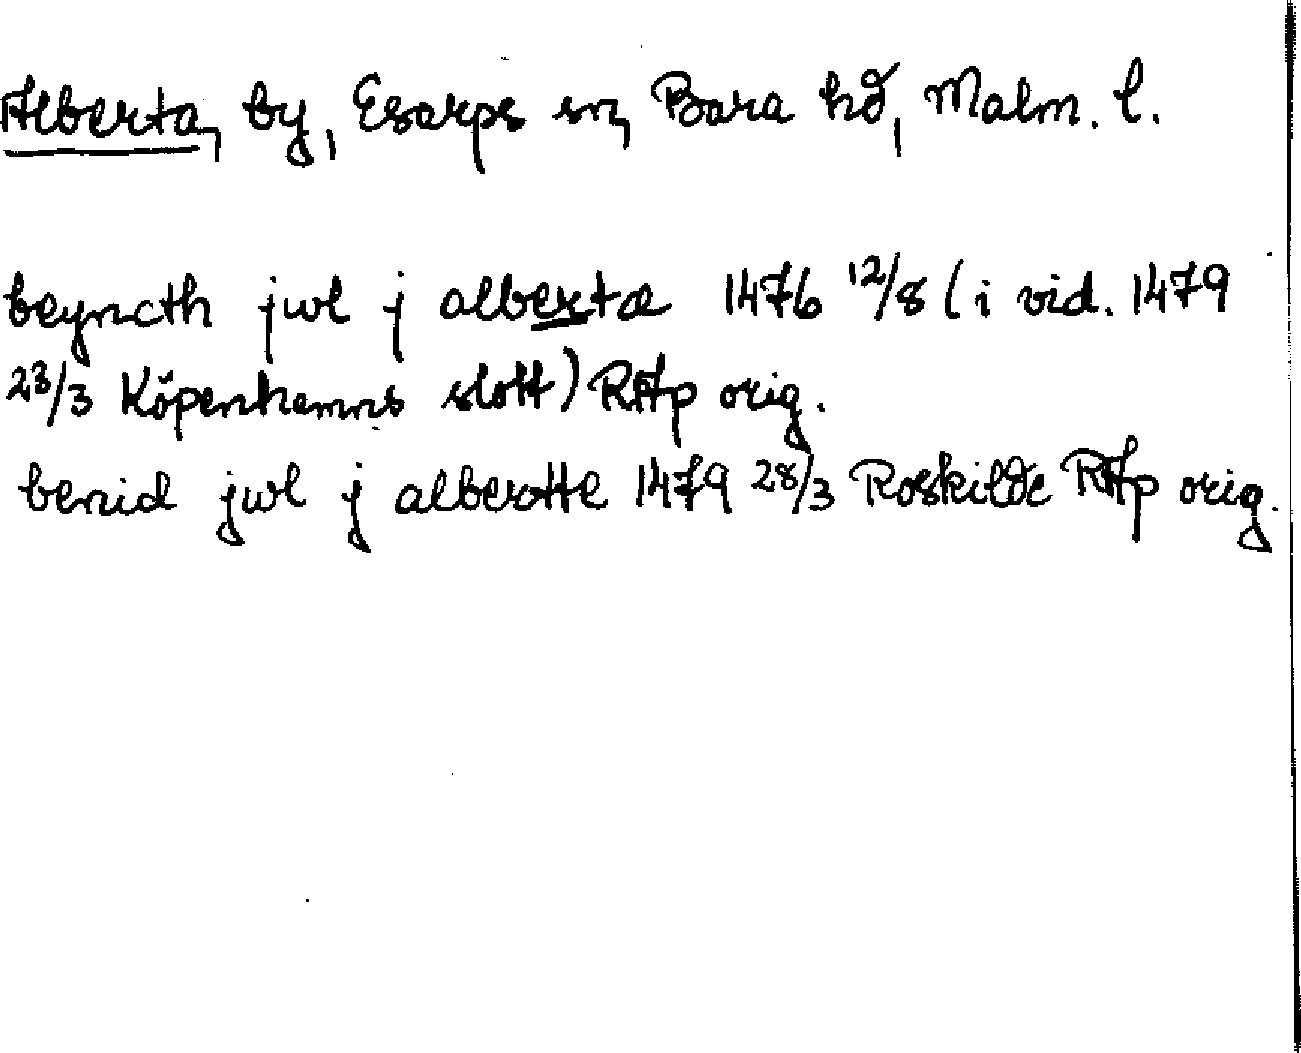 Alberta, by, Esarps sn, Bara hd, Malm. l.
beyncth jwl j albertæ 1476 12/8 (i vid. 1479
23/3 Köpenhamns slott) RAp orig.
benid jwl j alberotte 1479 28/3 Roskilde RAp orig.